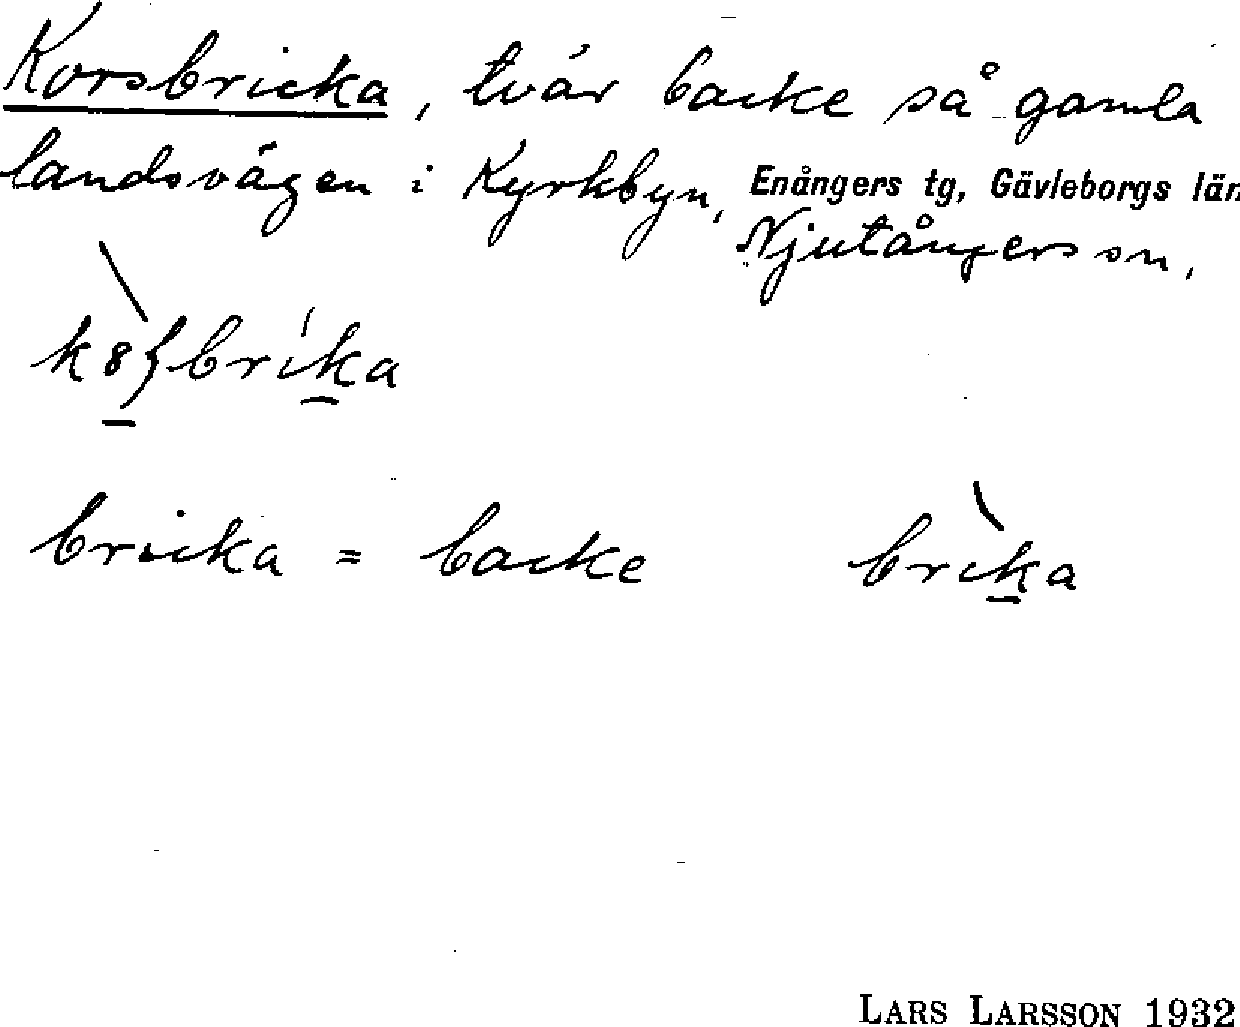 Korsbricka, tvär backe så gamla
landsvägen i Kyrkbyn, Enångers tg, Gävleborgs län
Njutångers sn,
bricka = backe brika
LARS LARSSON 1932